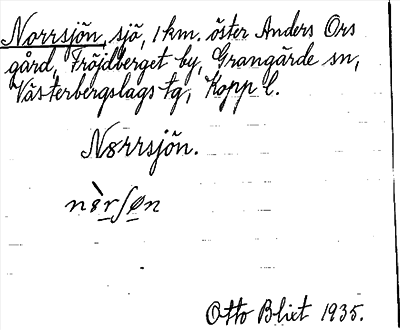 Norrsjön, sjö, 1 km. öster Anders Ors
gård, Fröjdberget by, Grangärde sn,
Västerbergslags tg, Kopp l.
Norrsjön.
Otto Blixt 1935.